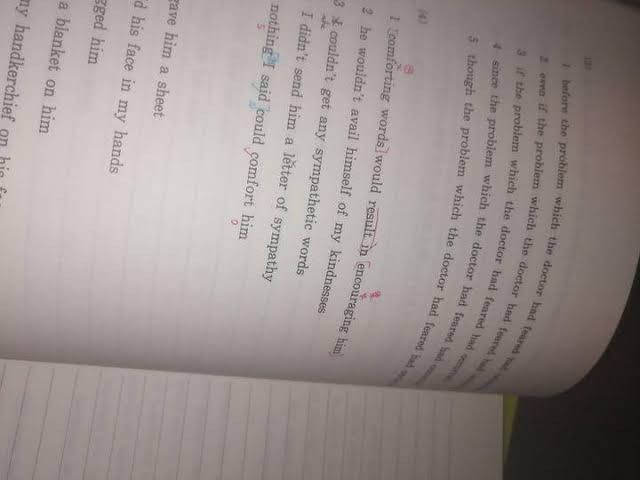 (3)
1 before the problem which the doctor had feared had
2 even if the problem which the doctor had feared had
3 if the problem which the doctor had feared had
4 since the problem which the doctor had feared had
5 though the problem which the doctor had feared had
(4)
1 comforting words would result in encouraging him
2 he wouldn't avail himself of my kindnesses
3 couldn't get any sympathetic words
I didn't send him a letter of sympathy
nothing I said could comfort him
him a sheet
his face in my hands
him
a blanket on him
handkerchief on his